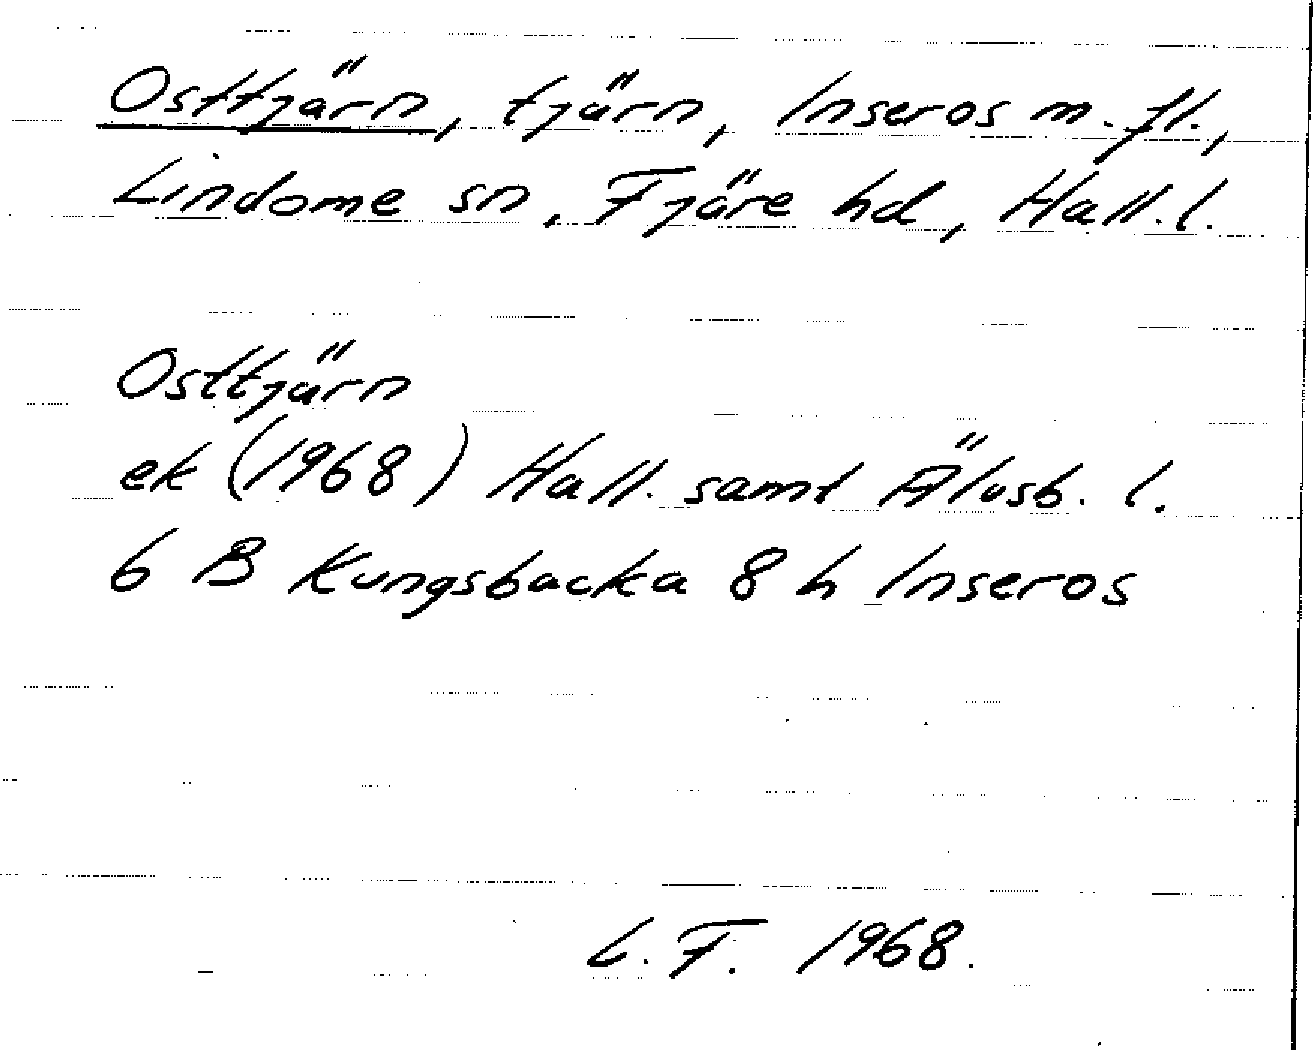 Osttjärn, tjärn, Inseros m. fl.,
Lindome sn, Fjäre hd, Hall. l.
Osttjärn
ek (1968) Hall. samt Älvsb. l.
6 B Kungsbacka 8 h Inseros
L. F. 1968.